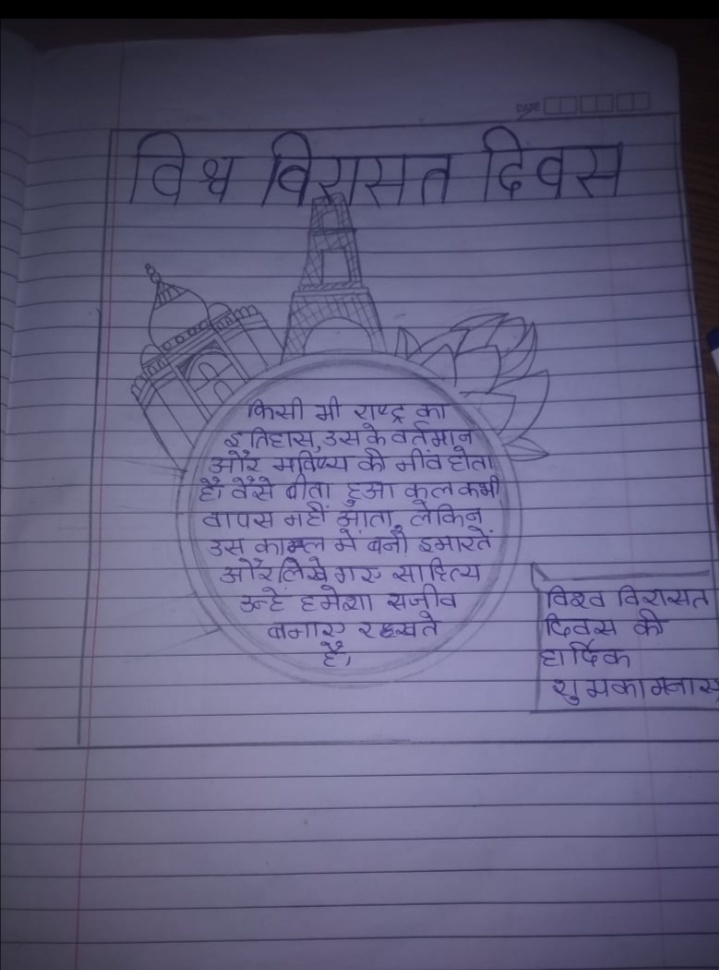 DATE
विश्व विरासत दिवस
किसी भी राष्ट्र का
इतिहास, उसके वर्तमान
और भविष्य की नींव होता
है। वैसे बीता हुआ कल कभी
वापस नहीं आता, लेकिन
उस काल में बनी इमारतें
और लिखे गए साहित्य
उन्हें हमेशा सजीव
बनाए रखते
हैं,
विश्व विरासत
दिवस की
हार्दिक
शुभकामनाए